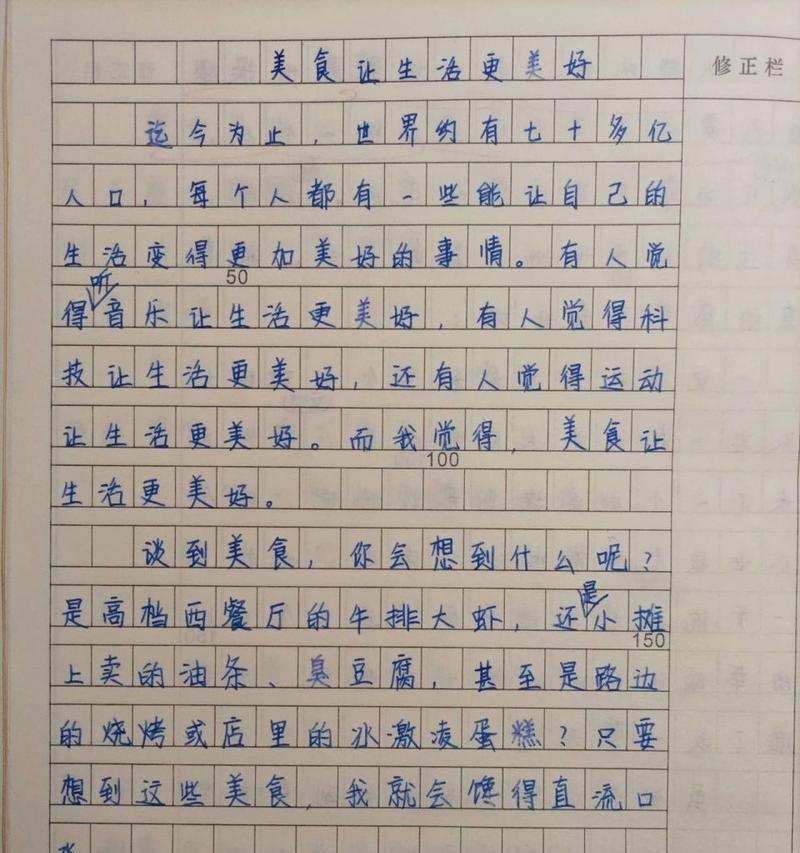 美食让生活更美好
修正栏
迄今为止，世界约有七十多亿
人口，每个人都有一些能让自己的
生活变得更加美好的事情。有人觉
50
听
得音乐让生活更美好，有人觉得科
技让生活更美好，还有人觉得运动
让生活更美好。而我觉得，美食让
100
生活更美好。
谈到美食，你会想到什么呢？
是
是高档西餐厅的牛排大虾，还小摊
150
上卖的油条、臭豆腐，甚至是路边
的烧烤或店里的冰激凌蛋糕？只要
想到这些美食，我就会馋得直流口